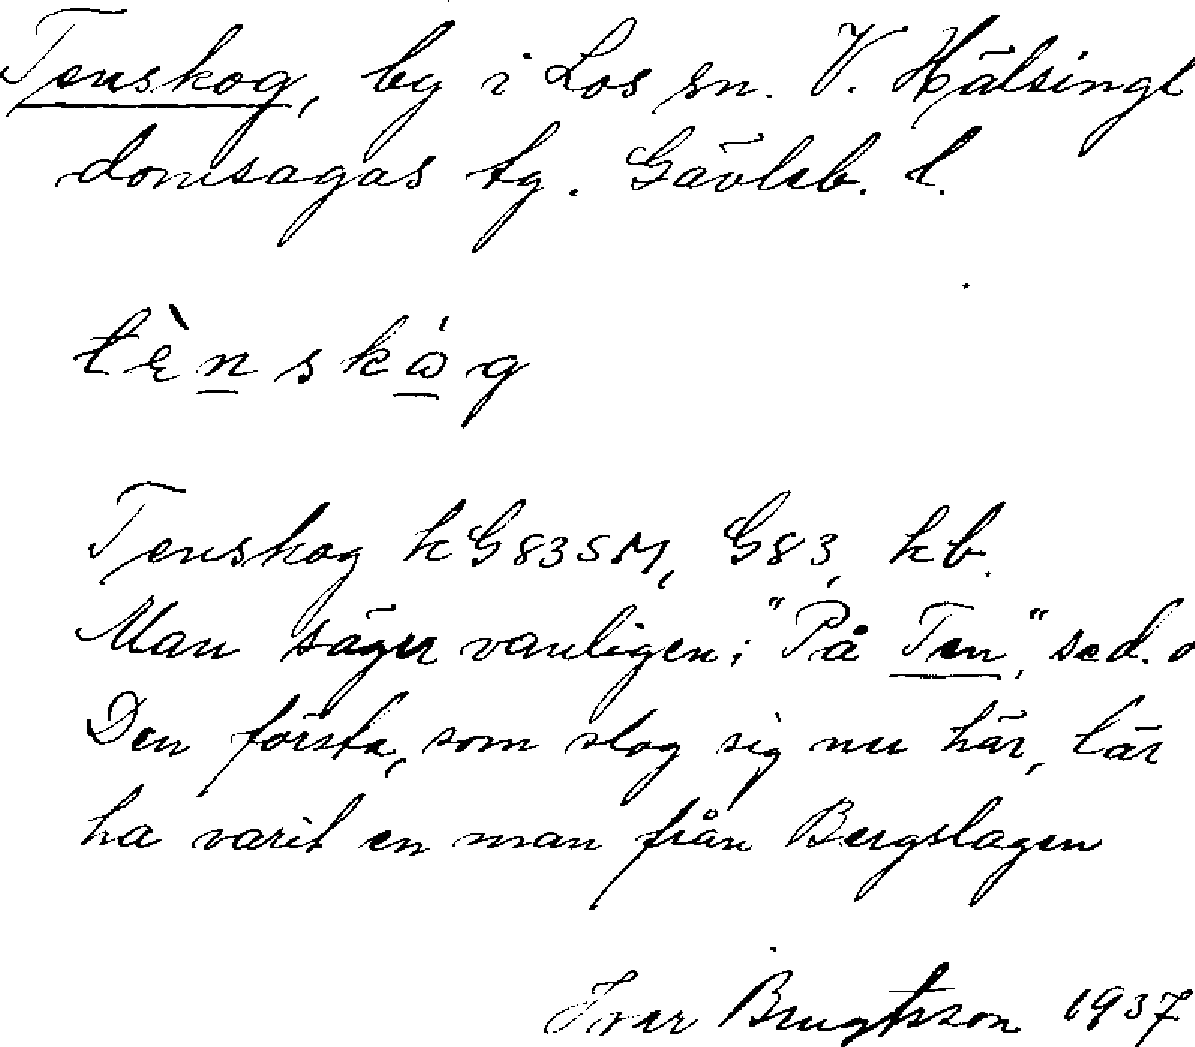 Tenskog, by i Los sn. V. Hälsingl
domsagas tg. Gävleb. l.
tὲnskɷ́g
Tenskog kG83SM, G83, kb.
Man säger vanligen: "På Ten", sed. o
Den första, som slog sig ner här, lär
ha varit en man från Bergslagen
Ivar Bengtsson 1937